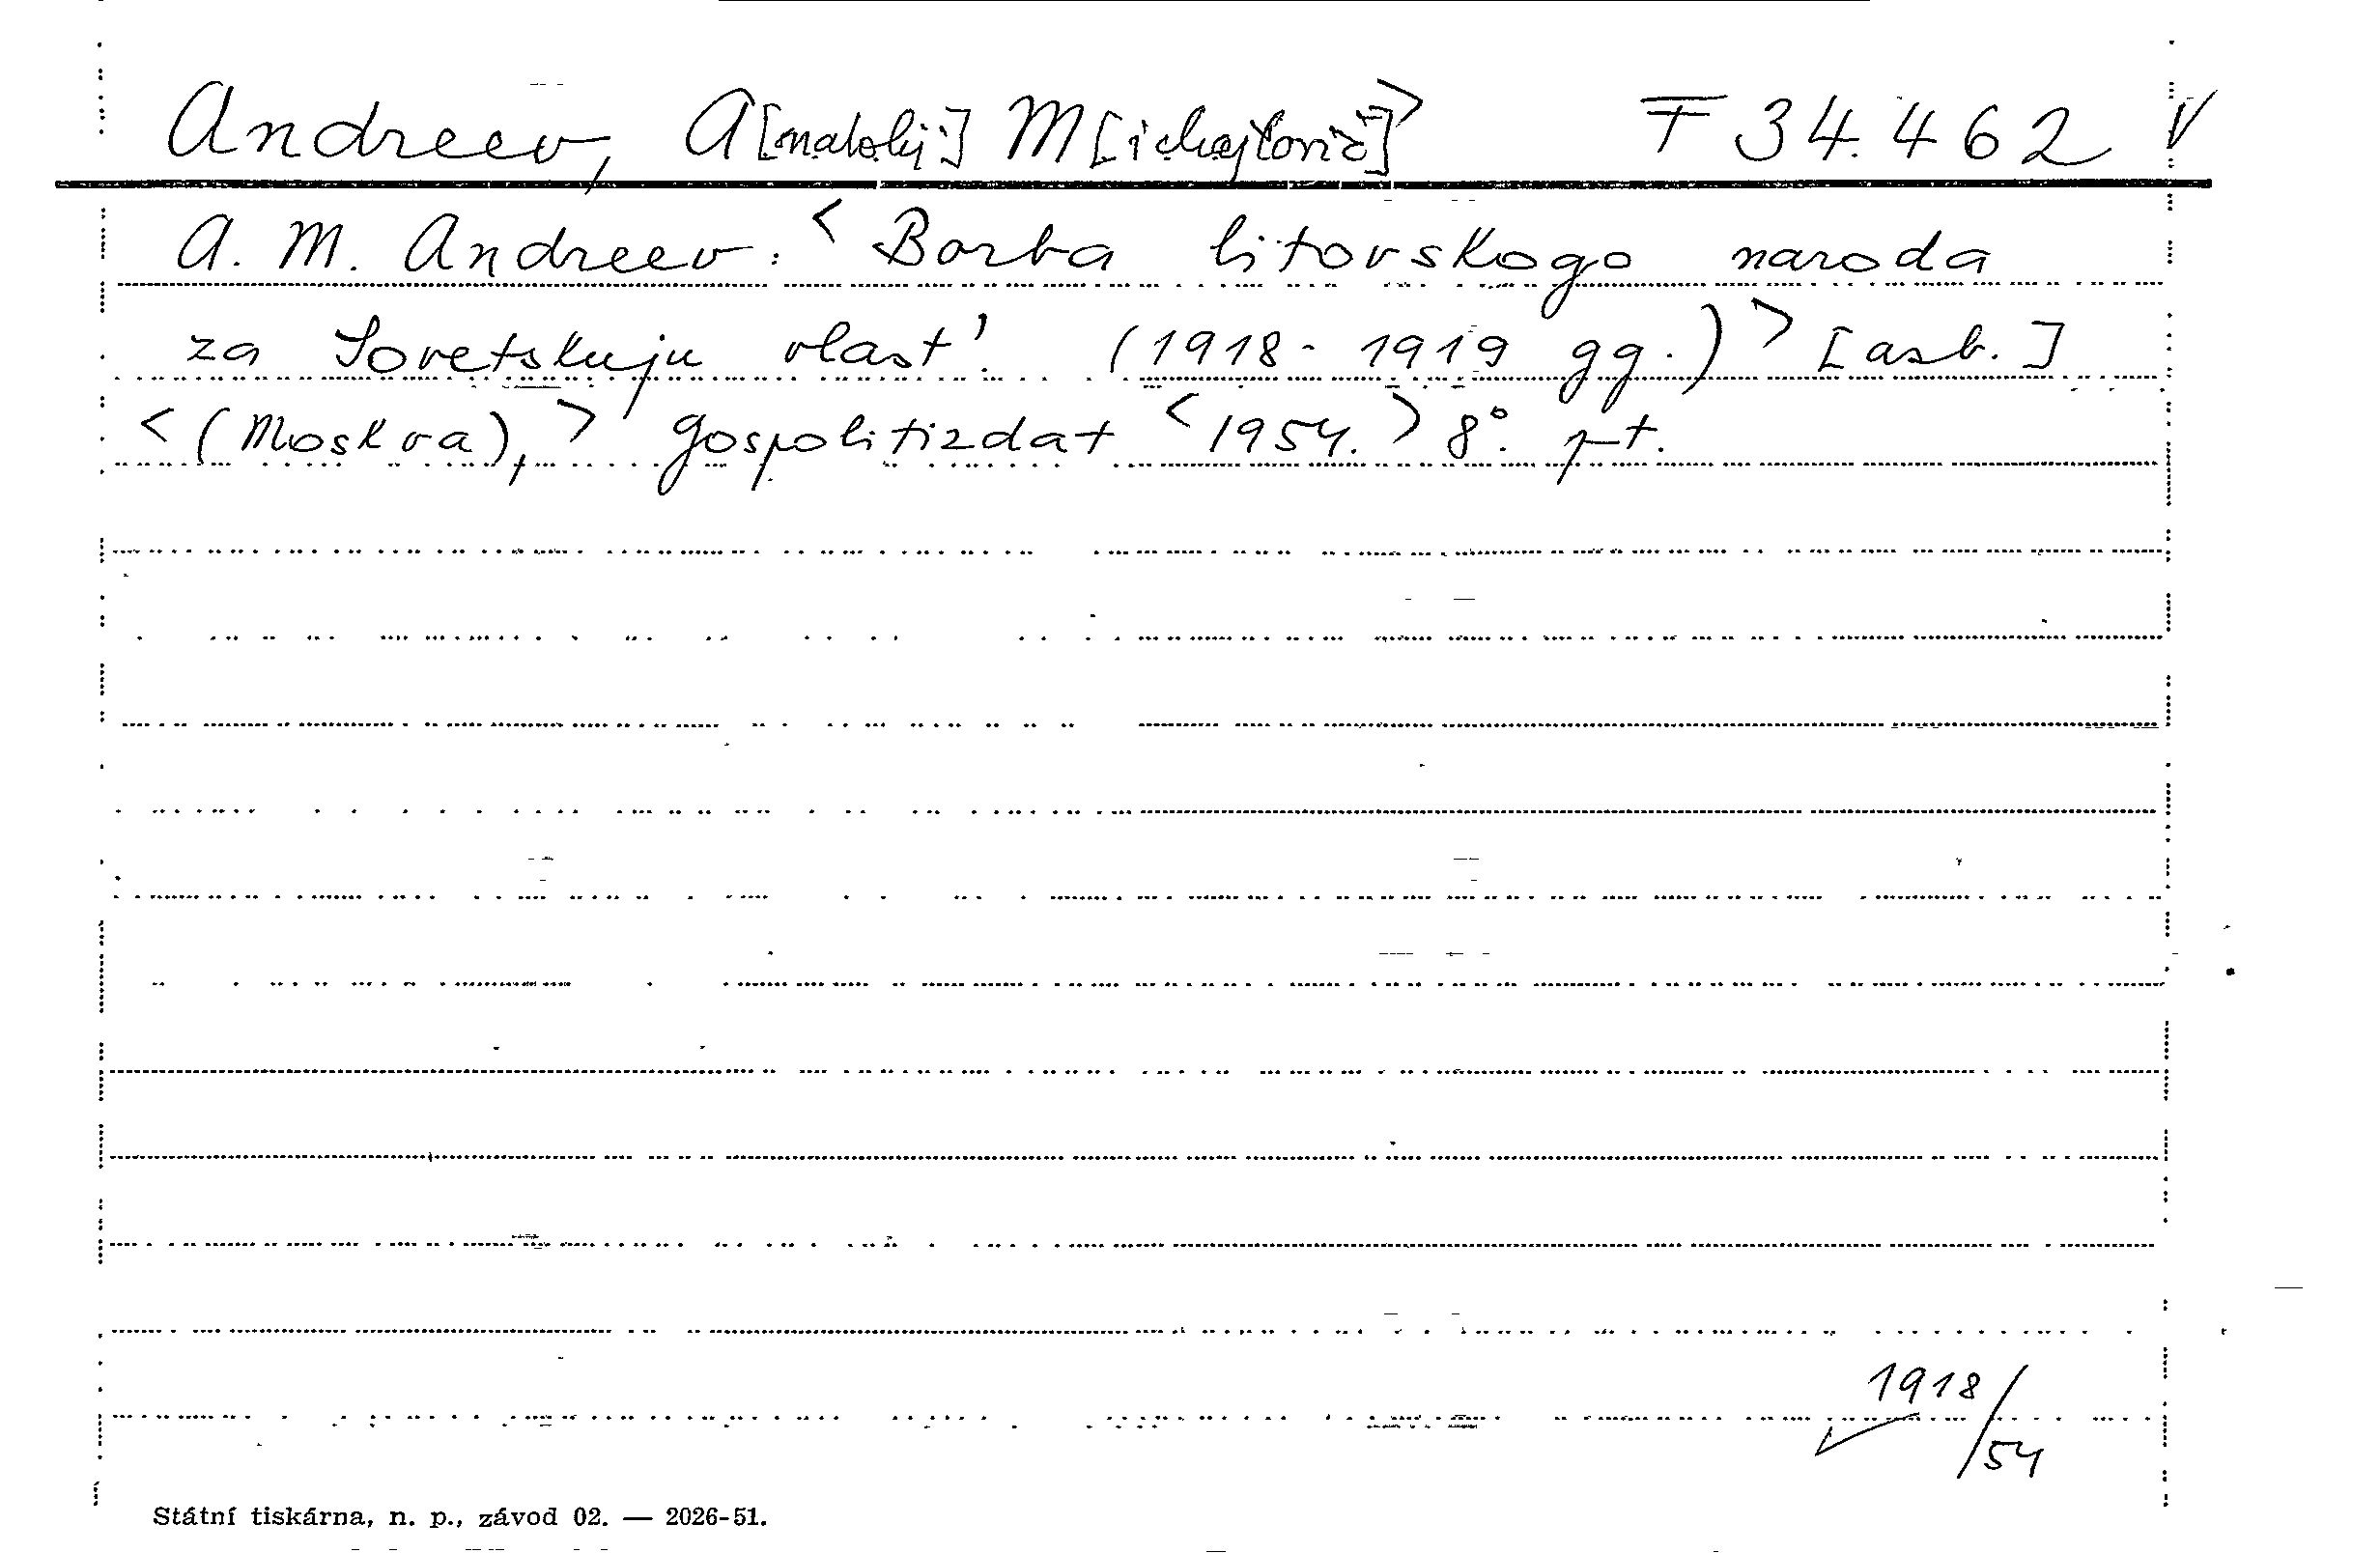 Andreev, A[natolij] M[ichajlovič]> F 34.462 V
A. M. Andreev: < Borba litovskogo naroda
za Sovetskuju vlast'. (1918-1919 gg.) > [azb.]
<(Moskva),> Gospolitizdat <1954.> 8°. pt.
1918/54
Státní tiskárna, n. p., závod 02. — 2026-51.